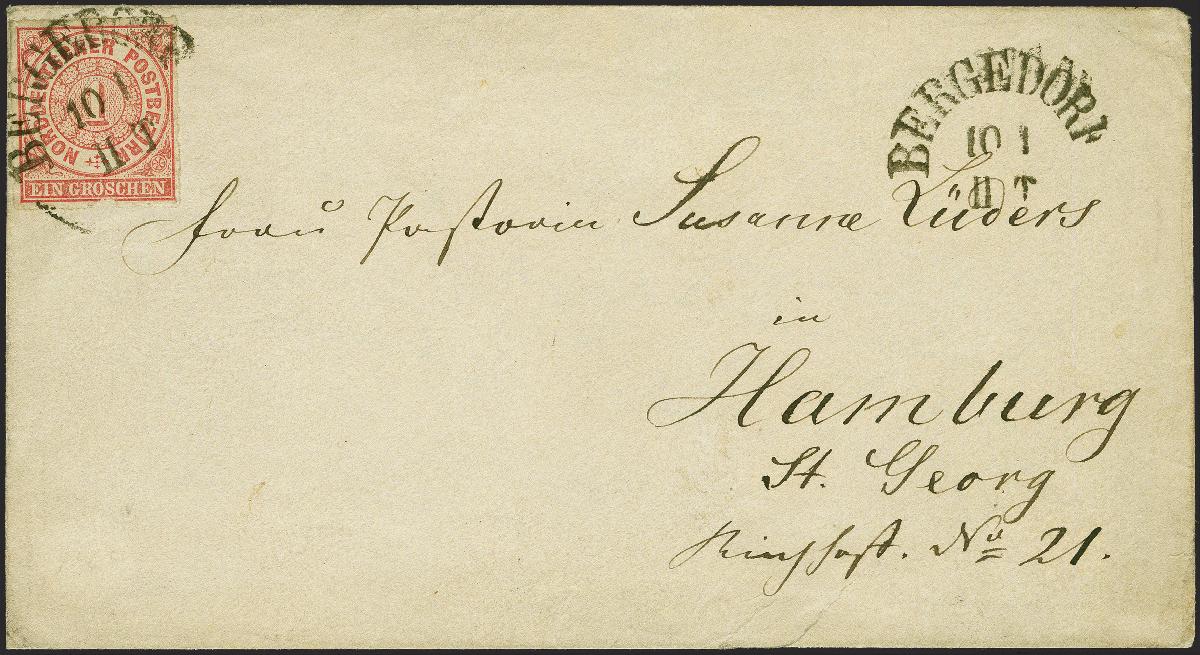 NORDDEUTSCHER POSTBEZIRK
1
EIN GROSCHEN
BERGEDORF
10 1
II T
BERGEDORF
10 1
II T
Frau Pastorin Susanne Lüders
in
Hamburg
St. Georg
No 21.